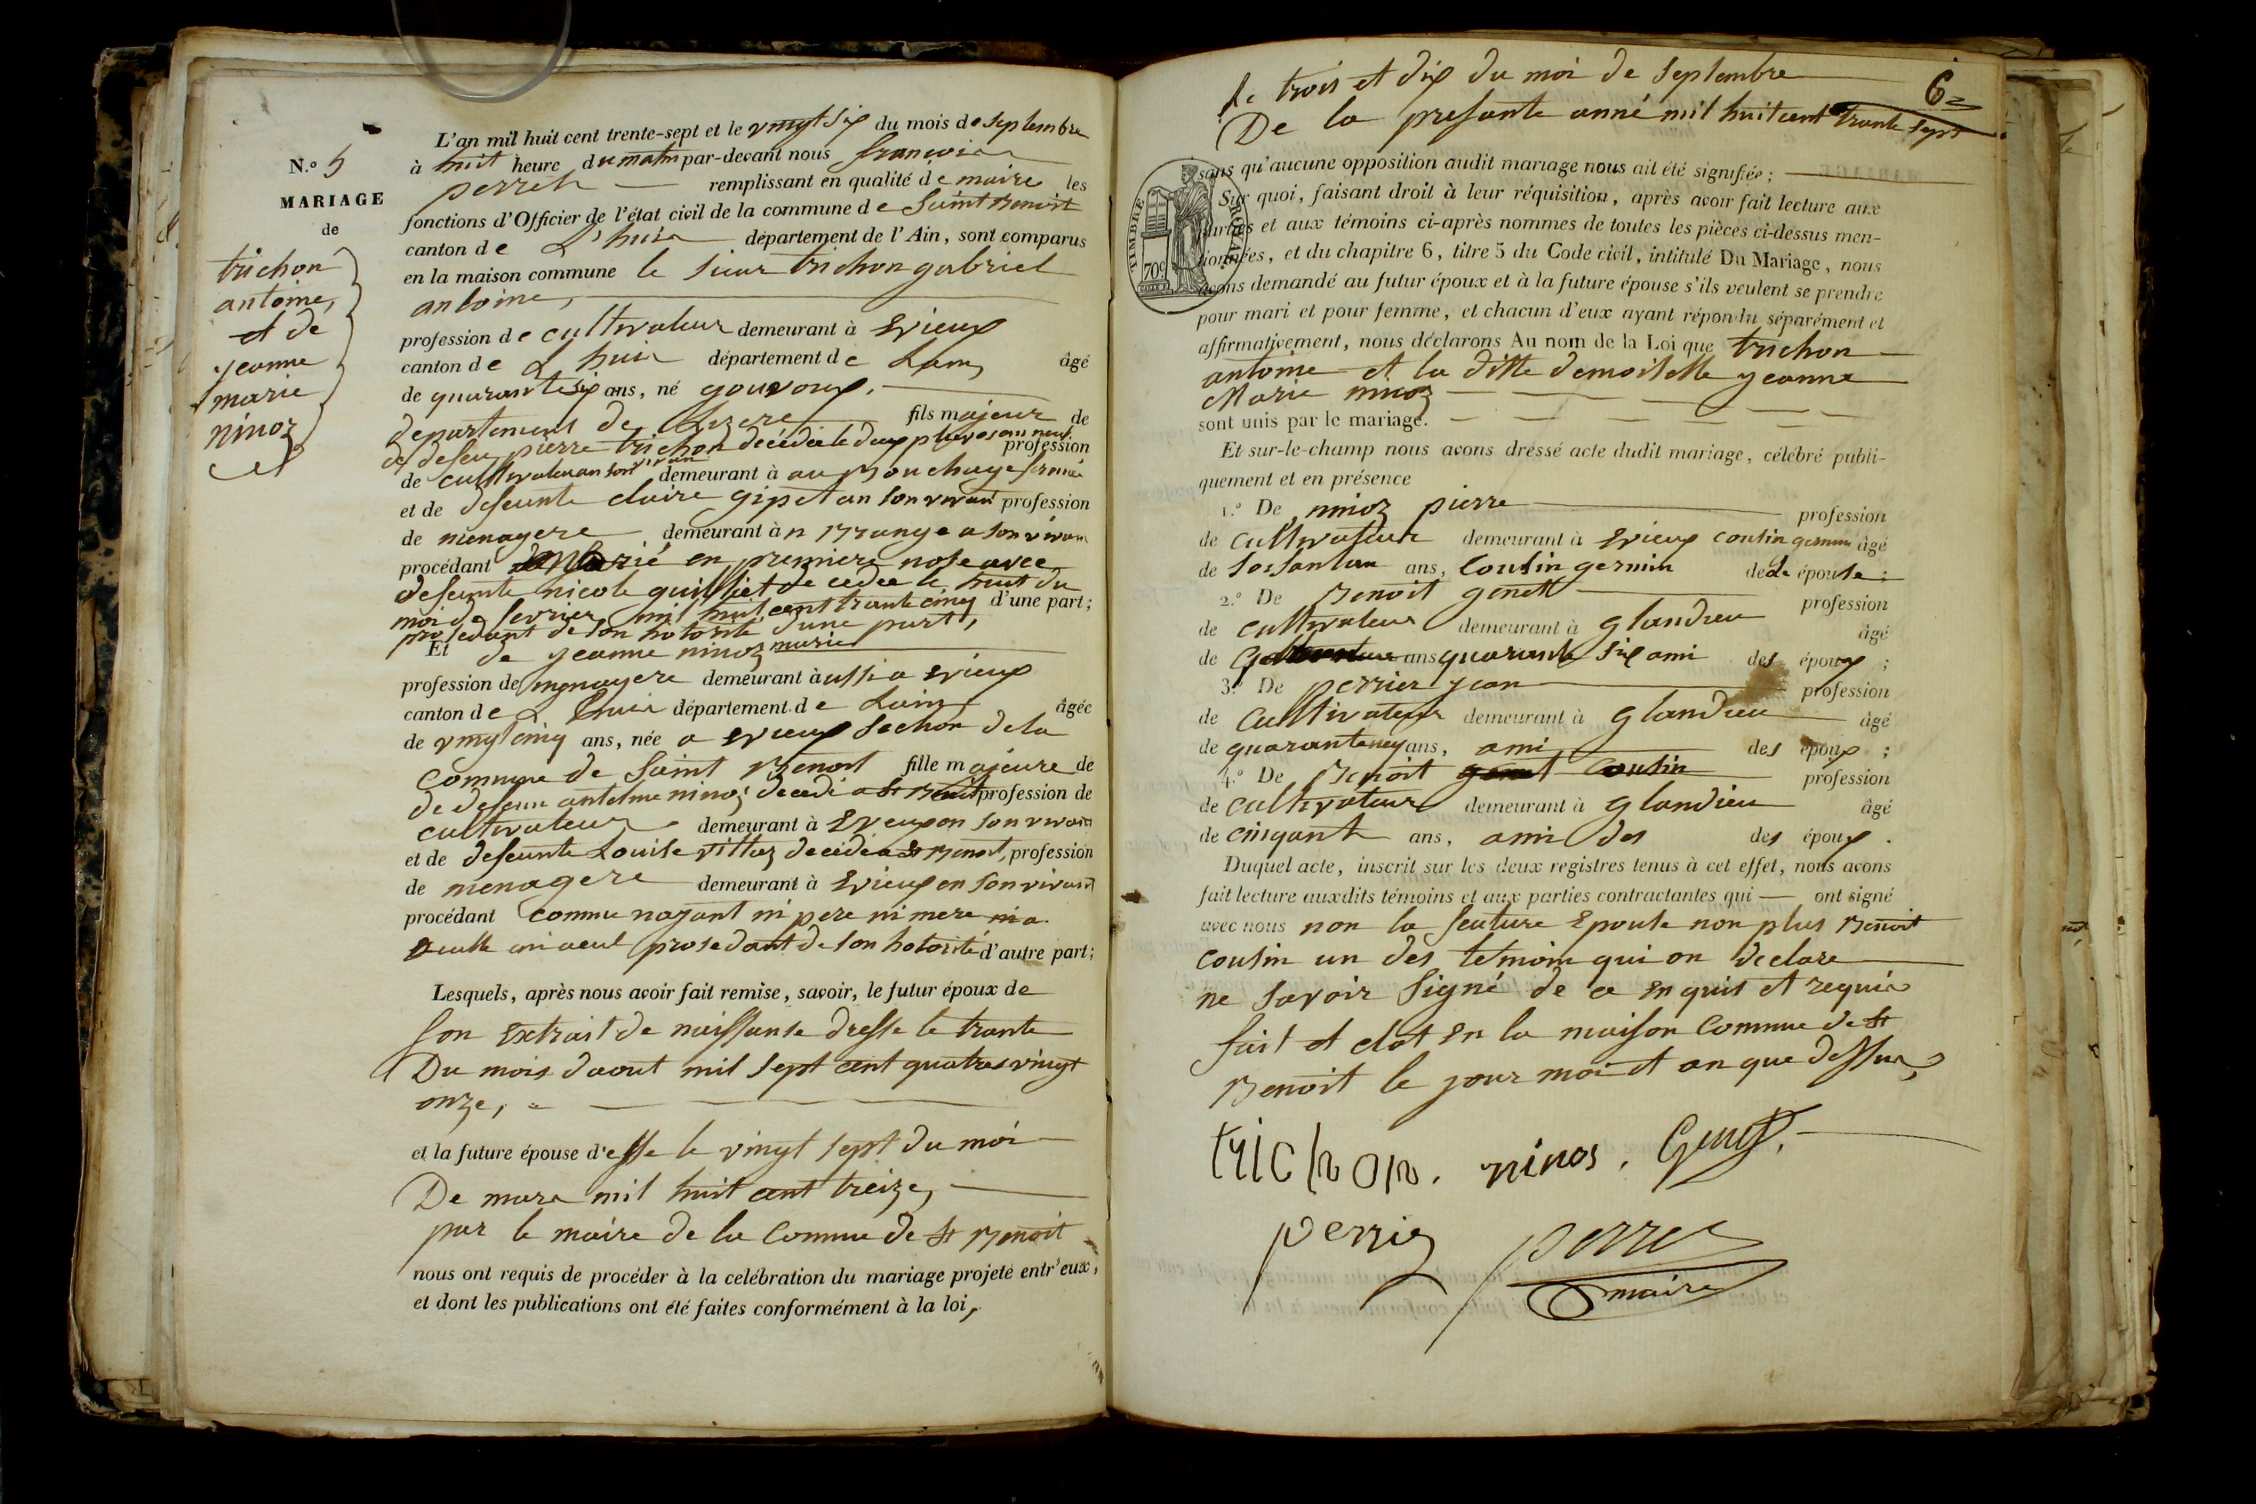 N.o 5
MARIAGE
de
trichon
antoine,
et de
jeanne
marie
ninoz
L'an mil huit cent trente-sept et le vingt six du mois de septembre
à huit heure du matin par-devant nous françois
perret remplissant en qualité de maire les
fonctions d'Officier de l'état civil de la commune de Saint Benoit
canton de L'huis département de l'Ain, sont comparus
en la maison commune le sieur trichon gabriel
antoine,
profession de cultivateur demeurant à Evieux
canton de L huis département de Lain, âgé
de quarante six ans, né
departement de Lizere fils majeur de
de defeu pierre trichon décédé le deux pluvos an neuf profession
de cultivateur an son vivan demeurant à au Bouchage
et de defeunte claire gipet an son vivant profession
de menagere demeurant à a son vivan
procédant en premiere nose avec
defeunte nicole quilliet decedee le huit du
moi de fevrier mil huit cent trante cinq d'une part;
prosedant de son hotorité dune part,
Et de jeanne ninoz marie
profession de menagere demeurant à ussi a Evieux
canton de L huis département de Lain âgée
de vingt cinq ans, née a Evieux section dela
commune de Saint Benoit fille majeure de
de defeun antelme ninoz decedé a St Benoit profession de
cultivateur demeurant à Evieux en son vivan
et de defeunte Louise villaz decedé a St Benoit, profession
de menagere demeurant à Evieux en son vivant
procédant comme nayant ni pere ni mere ni a
prosedant de son hotorité d'autre part;
Lesquels, après nous avoir fait remise, savoir, le futur époux de
son Extrait de naissanse dresse le trante
Du mois daout mil sept cent quatre vingt
onze,
et la future épouse d'esse le vingt sept du moi
De mars mil huit cent treize,
par le maire de la Commue de St Benoit
nous ont requis de procéder à la celébration du mariage projeté entr'eux,
et dont les publications ont été faites conformément à la loi,
de trois et dix du moi de septembre
De la presante anné mil huit cent trante sept
62
TIMBRE ROYAL
70c
sans qu'aucune opposition audit mariage nous ait été signifiée;
Sur quoi, faisant droit à leur réquisition, après avoir fait lecture aux
parties et aux témoins ci-après nommes de toutes les pièces ci-dessus men-
tionnées, et du chapitre 6, titre 5 du Code civil, intitulé Du Mariage, nous
avons demandé au futur époux et à la future épouse s'ils veulent se prendre
pour mari et pour femme, et chacun d'eux ayant répondu séparément et
affirmativement, nous déclarons Au nom de la Loi que trichon
antoine et la ditte demoiselle jeanne
Marie ninoz
sont unis par le mariage.
Et sur-le-champ nous avons dressé acte dudit mariage, célébré publi-
quement et en présence
1.o De ninoz pierre profession
de cultivateur demeurant à Evieux cousin germin âgé
de ans, Cousin germin de de épouse;
2.o De Benoit genet profession
de cultivateur demeurant à glandieu âgé
de ans quarante six ami des époux;
3.o De perrier jean profession
de cultivateur demeurant à glandieu âgé
de quarante neuf ans, ami des époux;
4.o De Benoit cousin profession
de cultivateur demeurant à glandieu âgé
de cinquante ans, ami des des époux.
Duquel acte, inscrit sur les deux registres tenus à cet effet, nous avons
fait lecture auxdits témoins et aux parties contractantes qui ont signé
avec nous non la feuture Epouse non plus Benoit
cousin un des témoin qui on declare
ne savoir signé de ce Enquis et requis
fait et clot En la maison Commue de St
Benoit le jour moi et an que dessus
trichon. ninos. Genet.
perrier perret
maire